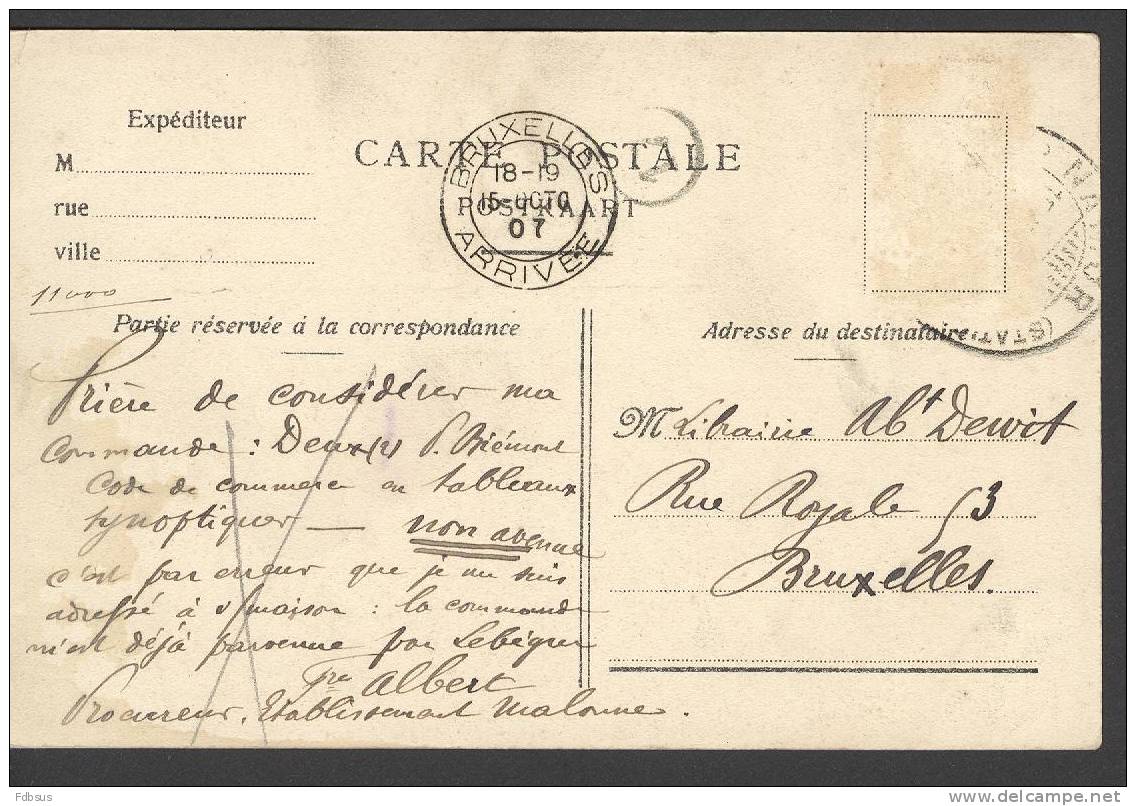 Expéditeur
M
rue
ville
11000
CARTE POSTALE
POSTKAART
BRUXELLES
18-19
15-OCTO
07
ARRIVÉE
NAMUR
(STATI
Partie réservée à la correspondance
Prière de considérer ma
commande : Deux (2) P. Briémont
Code de commerce en tableaux
synoptiques — non avenue
c'est par erreur que je me suis
adressé à v/maison : la commande
m'est déjà parvenue par Lebègue
Fre Albert
Procureur, Etablissement Malonne.
Adresse du destinataire
M Librairie Abt Dewit
Rue Royale 53
Bruxelles.
Fdbsus
delcampe.net